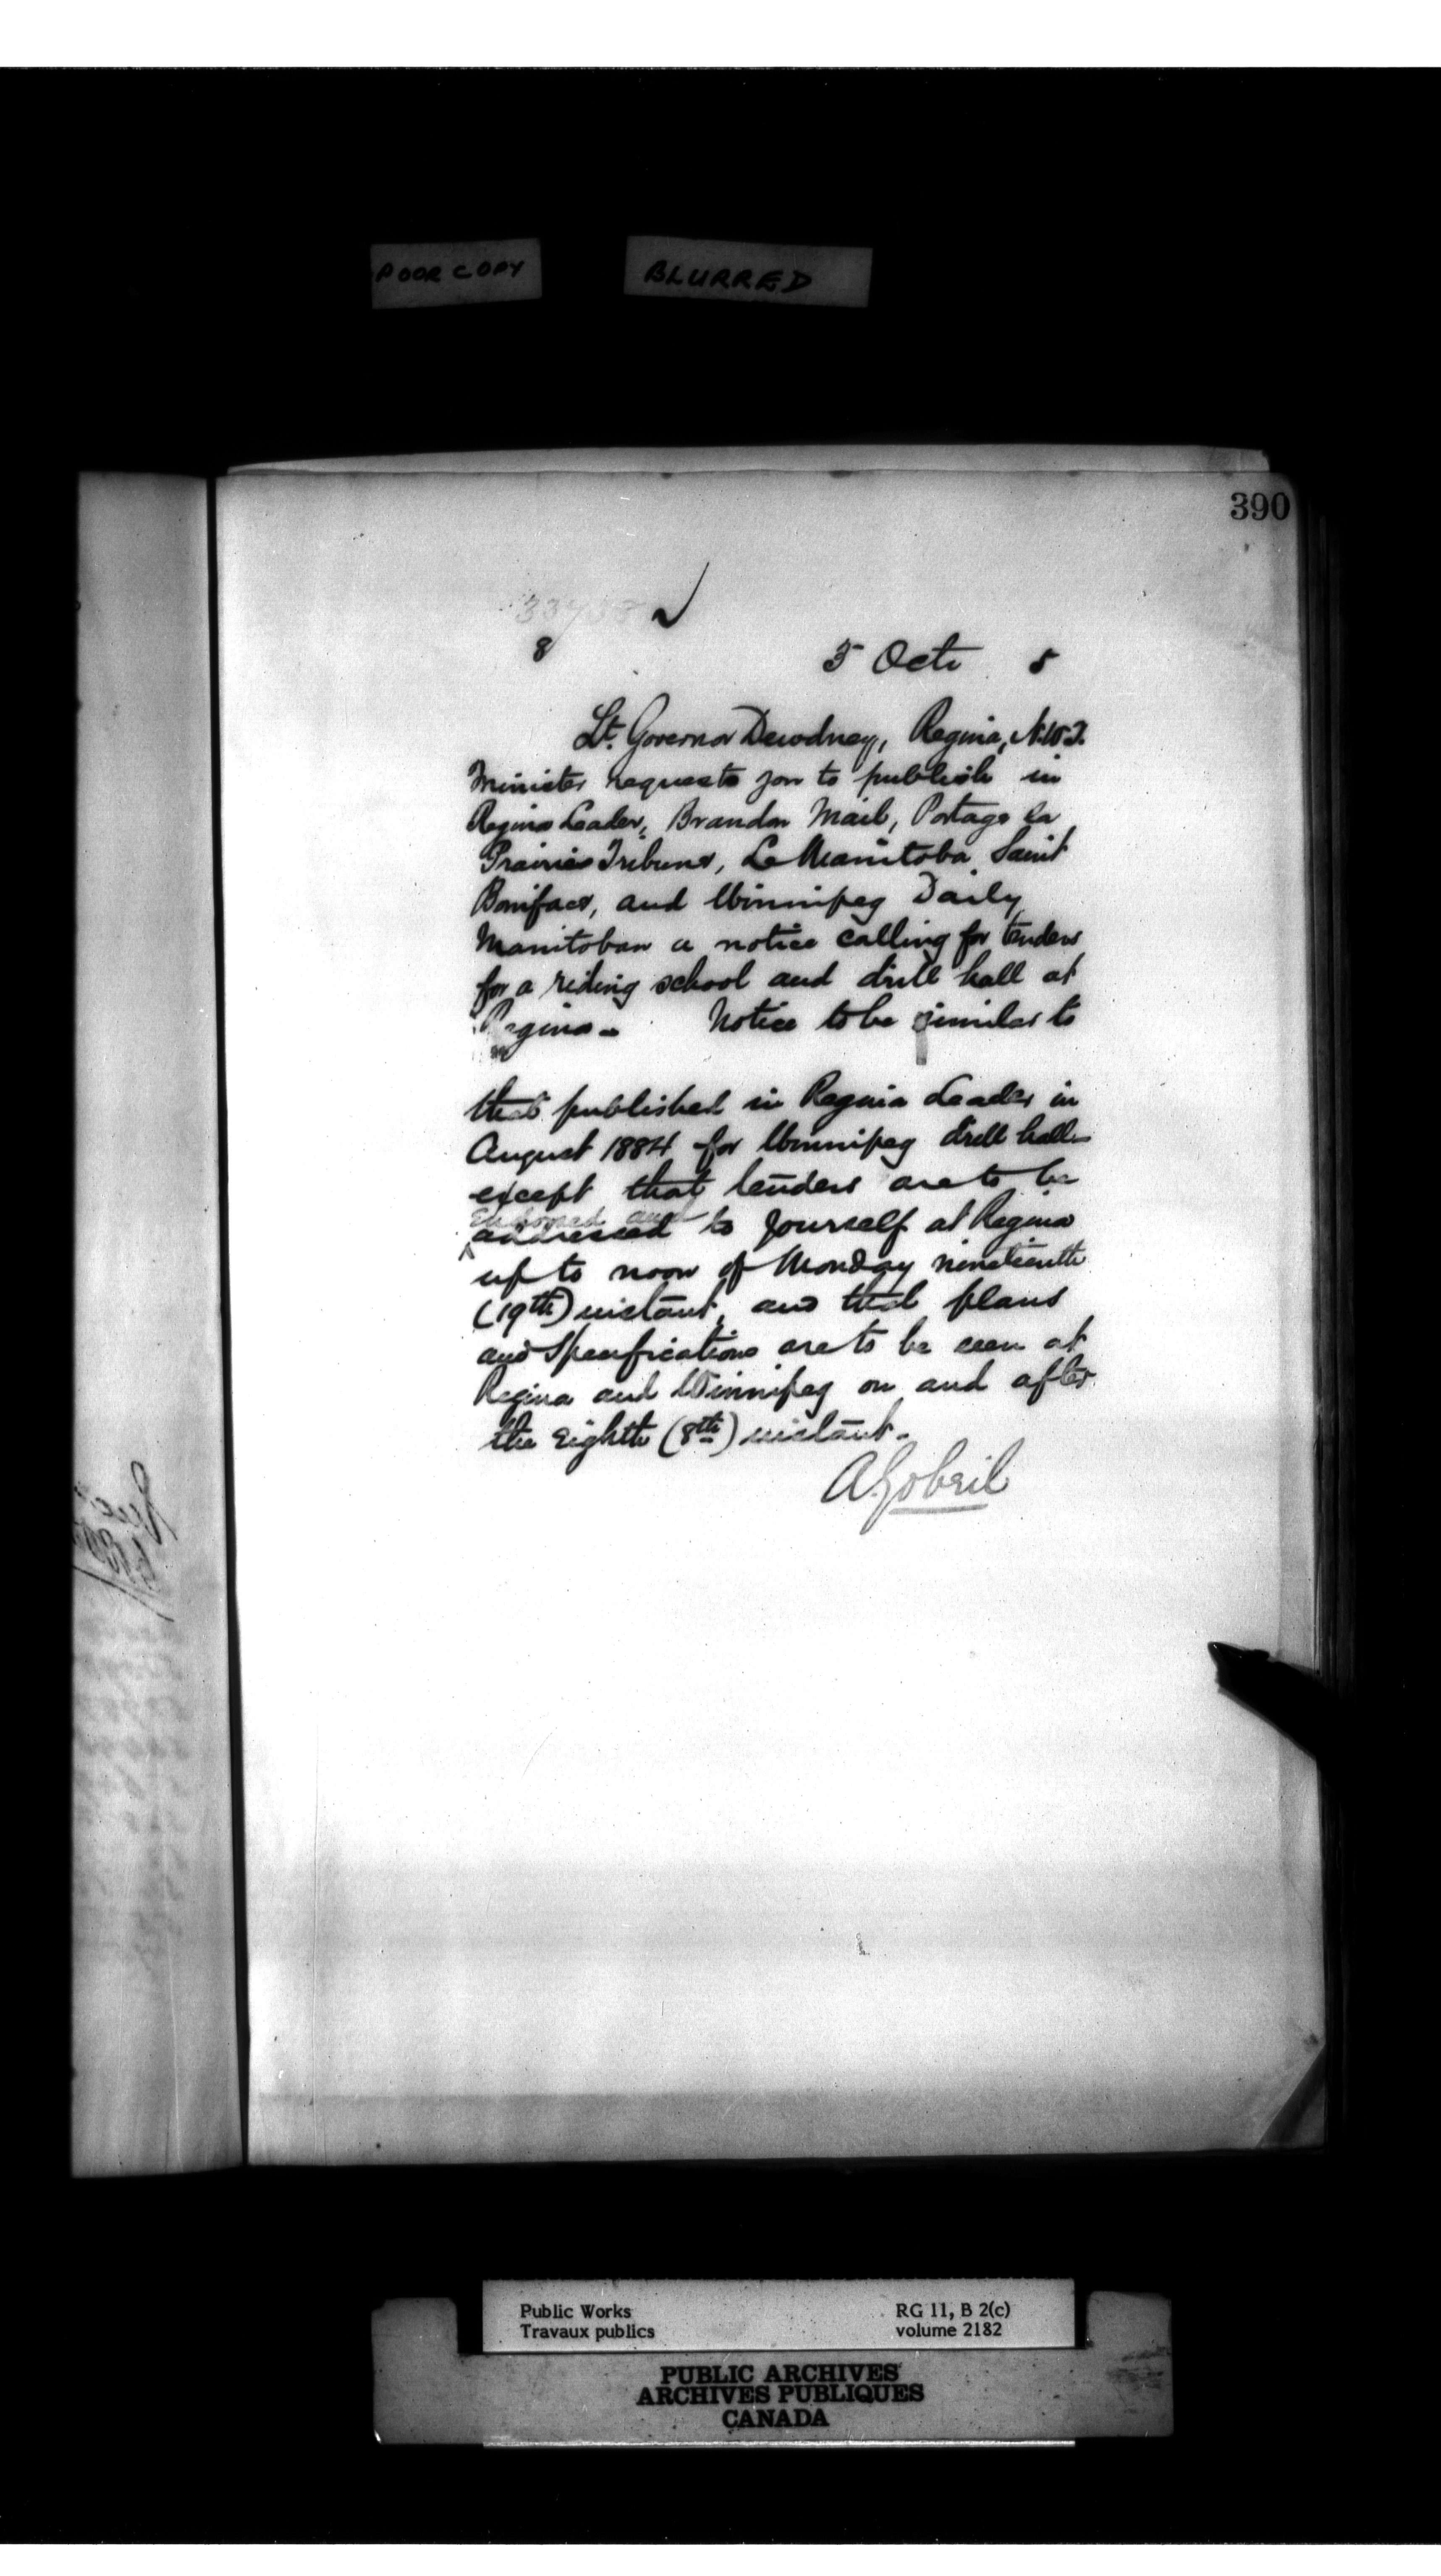 POOR COPY BLURRED
390
8
5 Octr 5
Lt. Governor Dewdney, Regina, N.W.T.
Minister requests you to publish in
Regina Leader, Brandon Mail, Portage la
Prairie Tribune, Le Manitoba Saint
Boniface, and Winnipeg Daily
Manitoban a notice calling for tenders
for a riding school and drill hall at
Regina. Notice to be similar to
that published in Regina Leader in
August 1884 for Winnipeg drill hall
except that tenders are to be
Endorsed and
addressed to yourself at Regina
up to noon of Monday nineteenth
(19th) instant, and that plans
and Specifications are to be seen at
Regina and Winnipeg on and after
the Eighth (8th) instant.
A Gobeil
Public Works RG 11, B 2(c)
Travaux publics volume 2182
PUBLIC ARCHIVES
ARCHIVES PUBLIQUES
CANADA